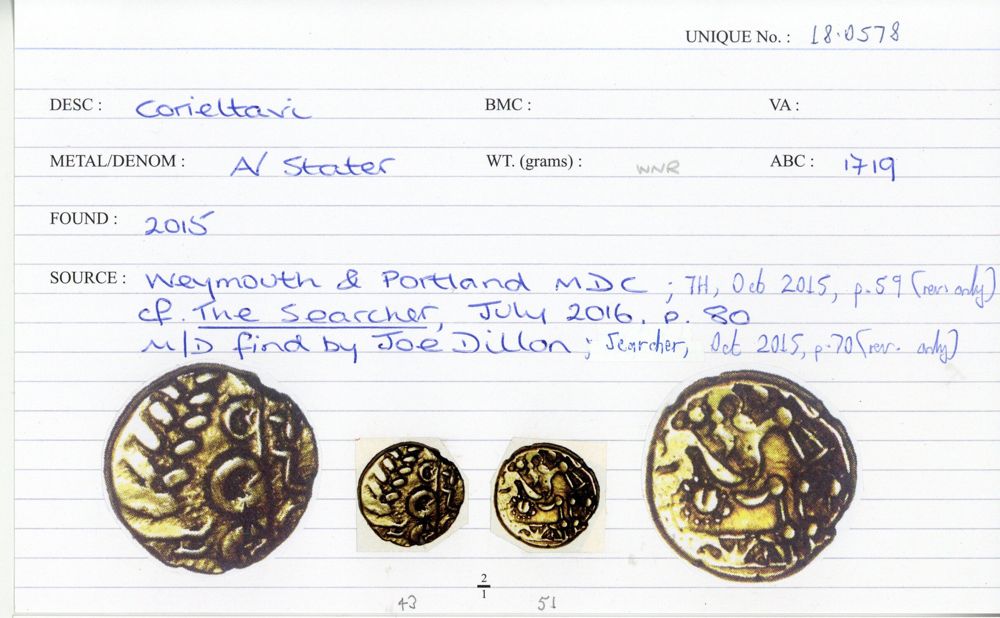 UNIQUE No. : 18.0578
DESC : Corieltavi BMC : VA :
METAL/DENOM : A/ Stater WT. (grams) : WNR ABC : 1719
FOUND : 2015
SOURCE : Weymouth & Portland MDC ; TH, Oct 2015, p.59 (rev. only)
cf. The Searcher, July 2016. p. 80
M/D find by Joe Dillon ; Searcher, Oct 2015, p.70 (rev. only)
2
1
43 51